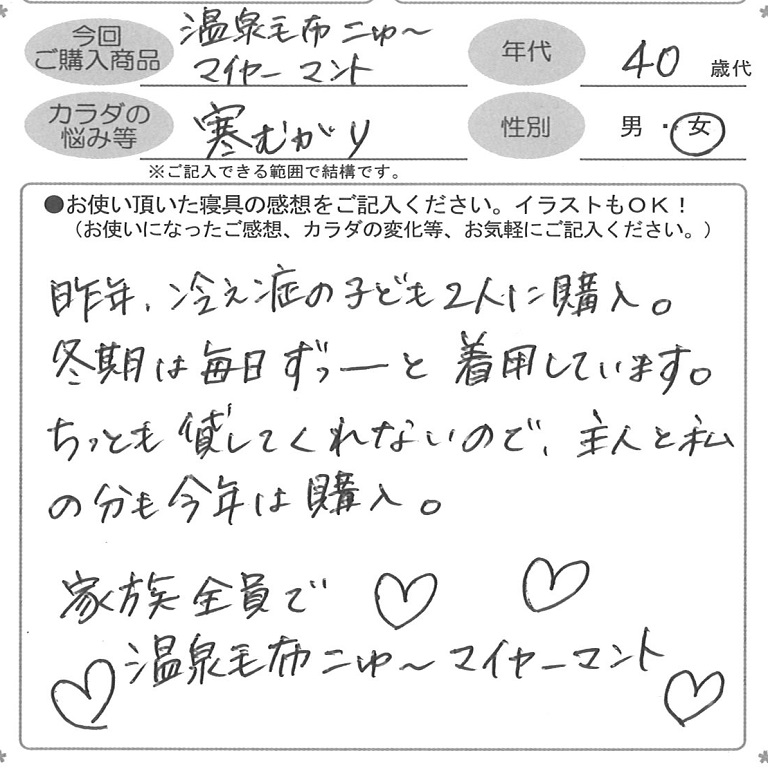 今回
ご購入商品
温泉毛布ニゅ〜
マイヤー マント
年代
40 歳代
カラダの
悩み等
寒むがり
性別
男・女
※ご記入できる範囲で結構です。
●お使い頂いた寝具の感想をご記入ください。イラストもOK！
（お使いになったご感想、カラダの変化等、お気軽にご記入ください。）
昨年、冷え症の子ども2人に購入。
冬期は毎日ずっーと着用しています。
ちっとも貸してくれないので、主人と私
の分も今年は購入。
家族全員で
温泉毛布ニゅ〜マイヤーマント